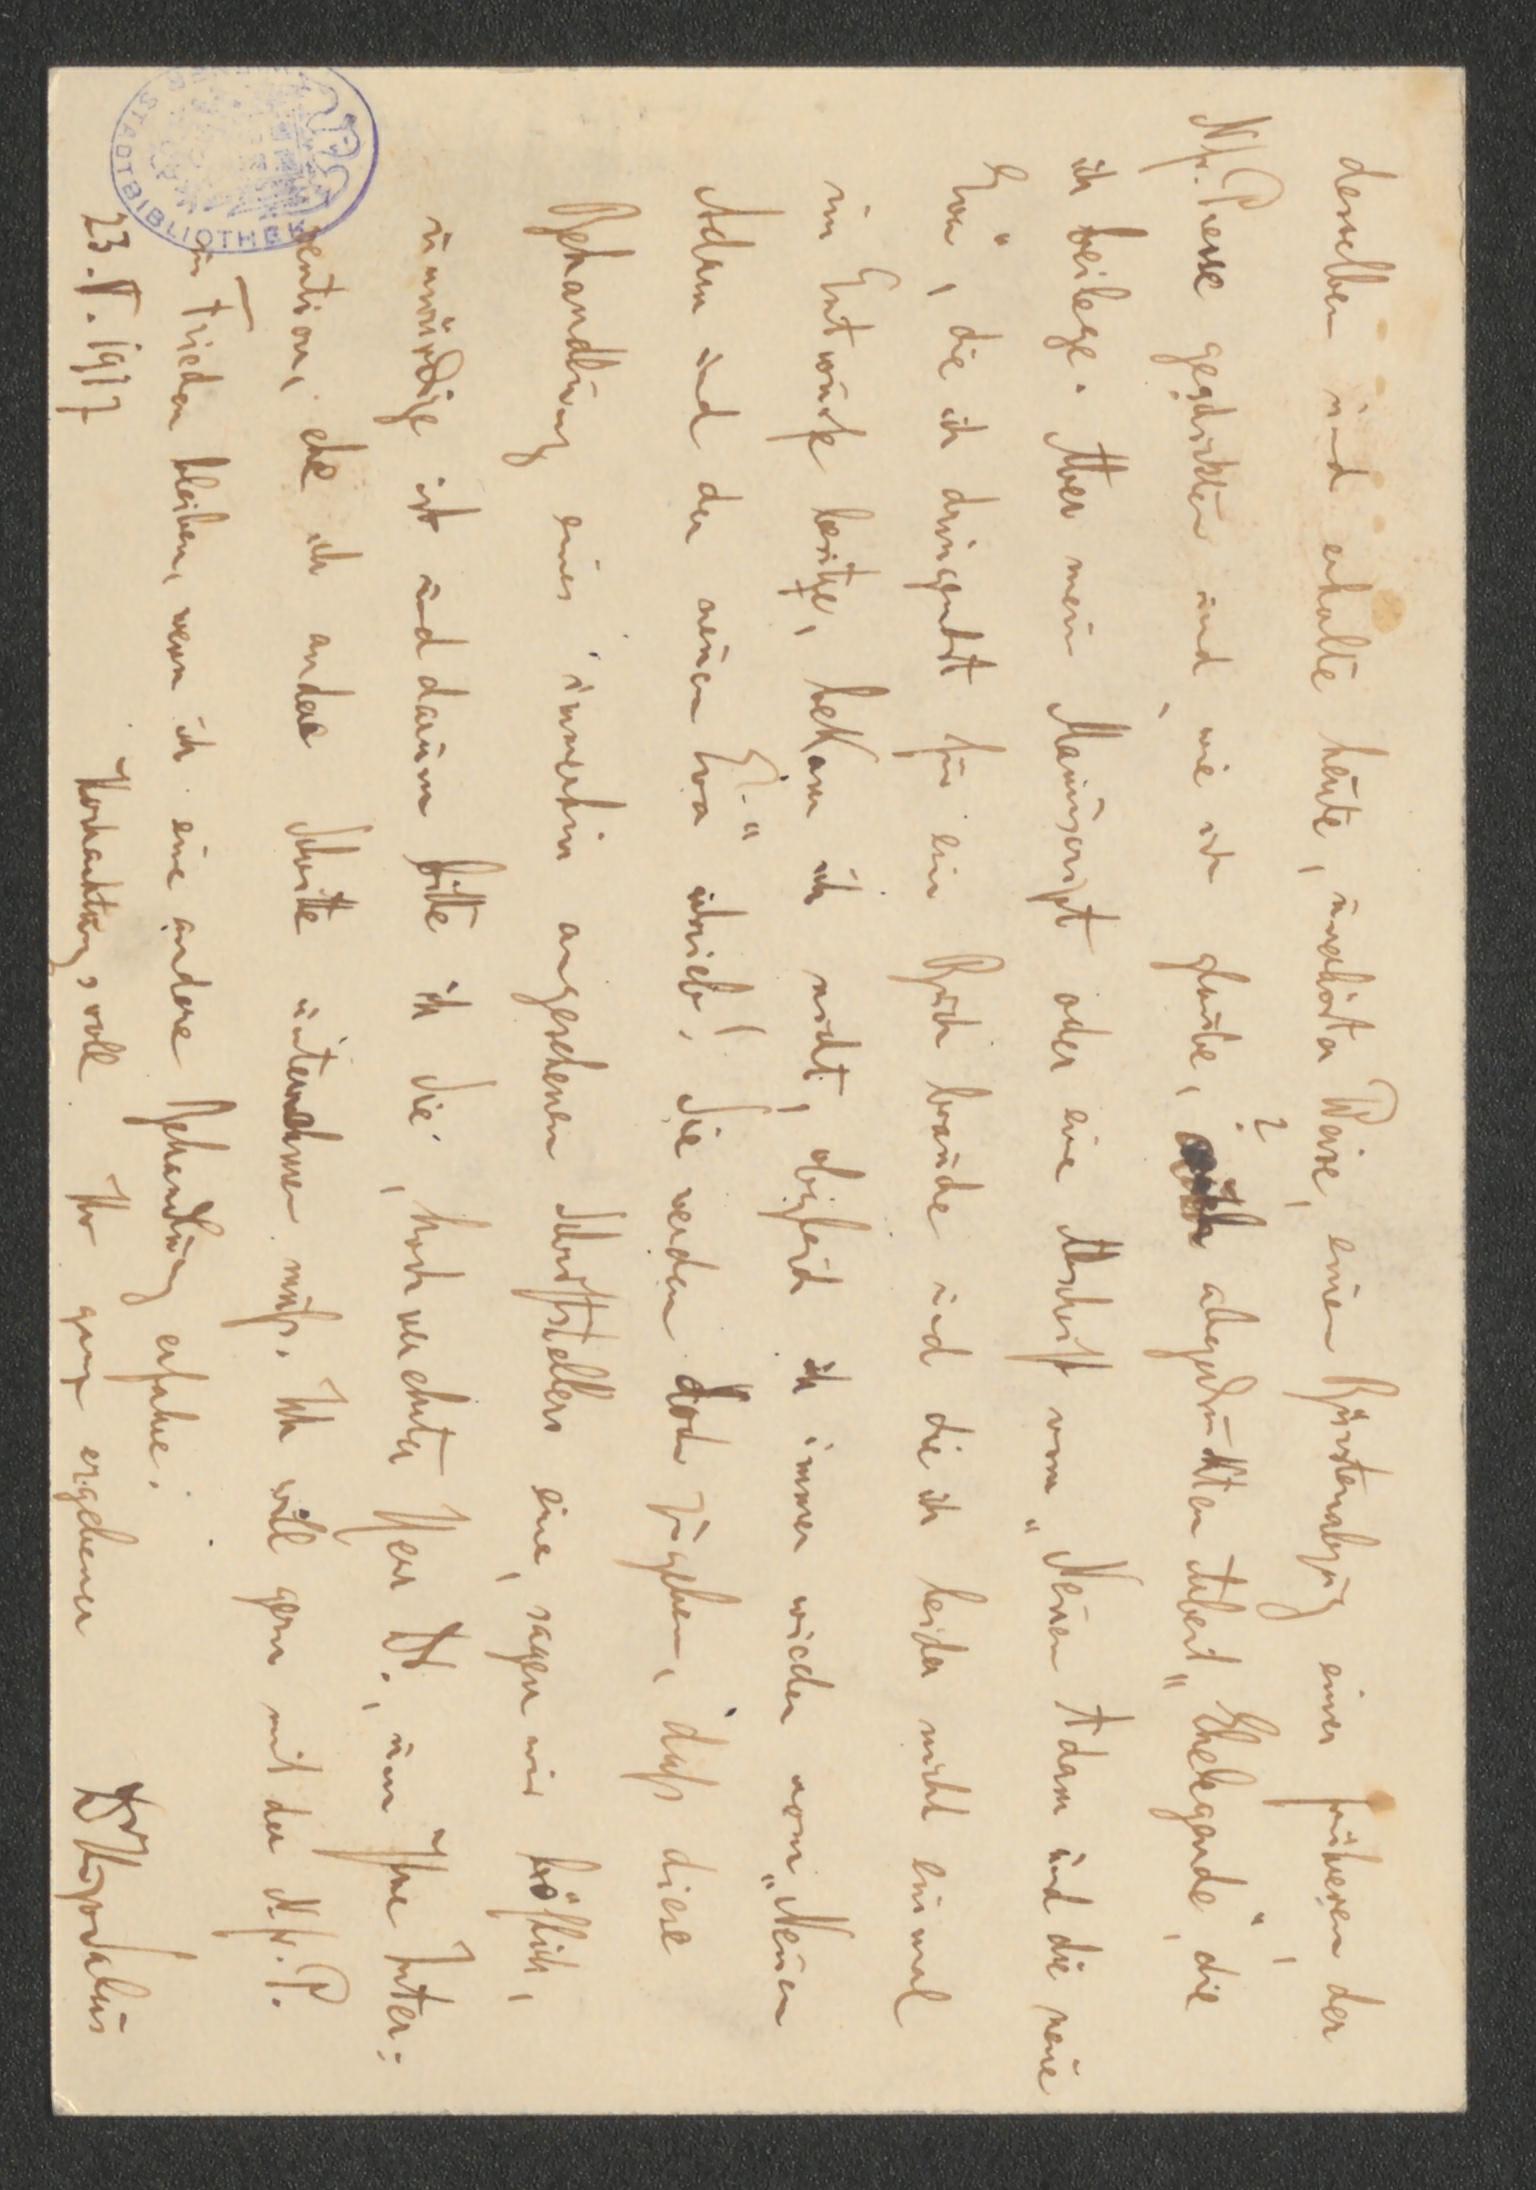 derselben und erhalte heute, unerhörter Weise, einen Bürstenabzug einer früheren der
N. fr. Presse geschickten und, wie ich glaube, auch? abgedruckten Arbeit „Ehelegende“, die
ich beilege. Aber mein Manuscript oder eine Abschrift vom „Neuen Adam und die neue
Eva“, die ich dringendst für ein Buch brauche und die ich leider nicht einmal
im Entwurfe besitze, bekam ich nicht, obgleich ich immer wieder vom „Neuen
Adam und der neuen Eva“ schrieb! Sie werden doch zugeben, daß diese
Behandlung eines immerhin angesehenen Schriftstellers eine, sagen wir höflich,
unwürdige ist und darum bitte ich Sie, hochverehrter Herr Dr., um Ihre Inter-
vention, ehe ich andere Schritte unternehmen muß. Ich will gern mit der N. fr. P.
in Frieden bleiben, wenn ich eine andere Behandlung erfahre.
Hochachtungsvoll Ihr ganz ergebener
23. V. 1917
STADTBIBLIOTHEK